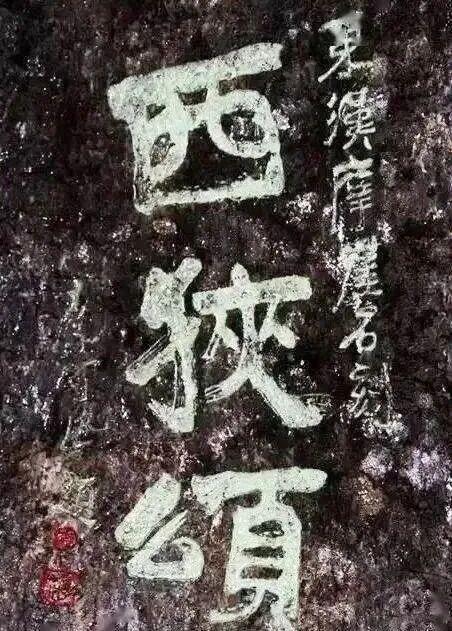 東漢摩崖石刻
西狹頌